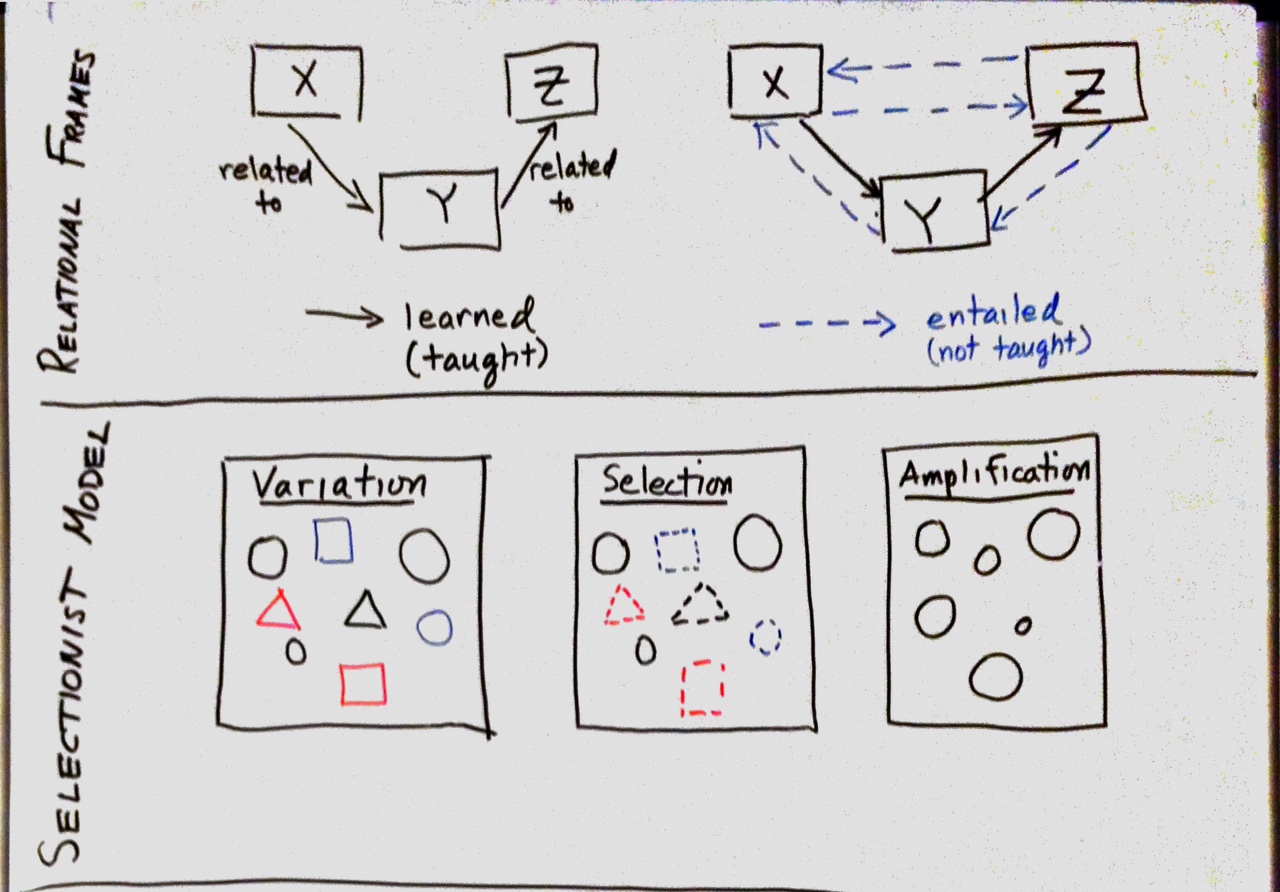 RELATIONAL FRAMES
X
Z
related
to
Y
related
to
X
Z
Y
learned
(taught)
entailed
(not taught)
SELECTIONIST MODEL
Variation
Selection
Amplification